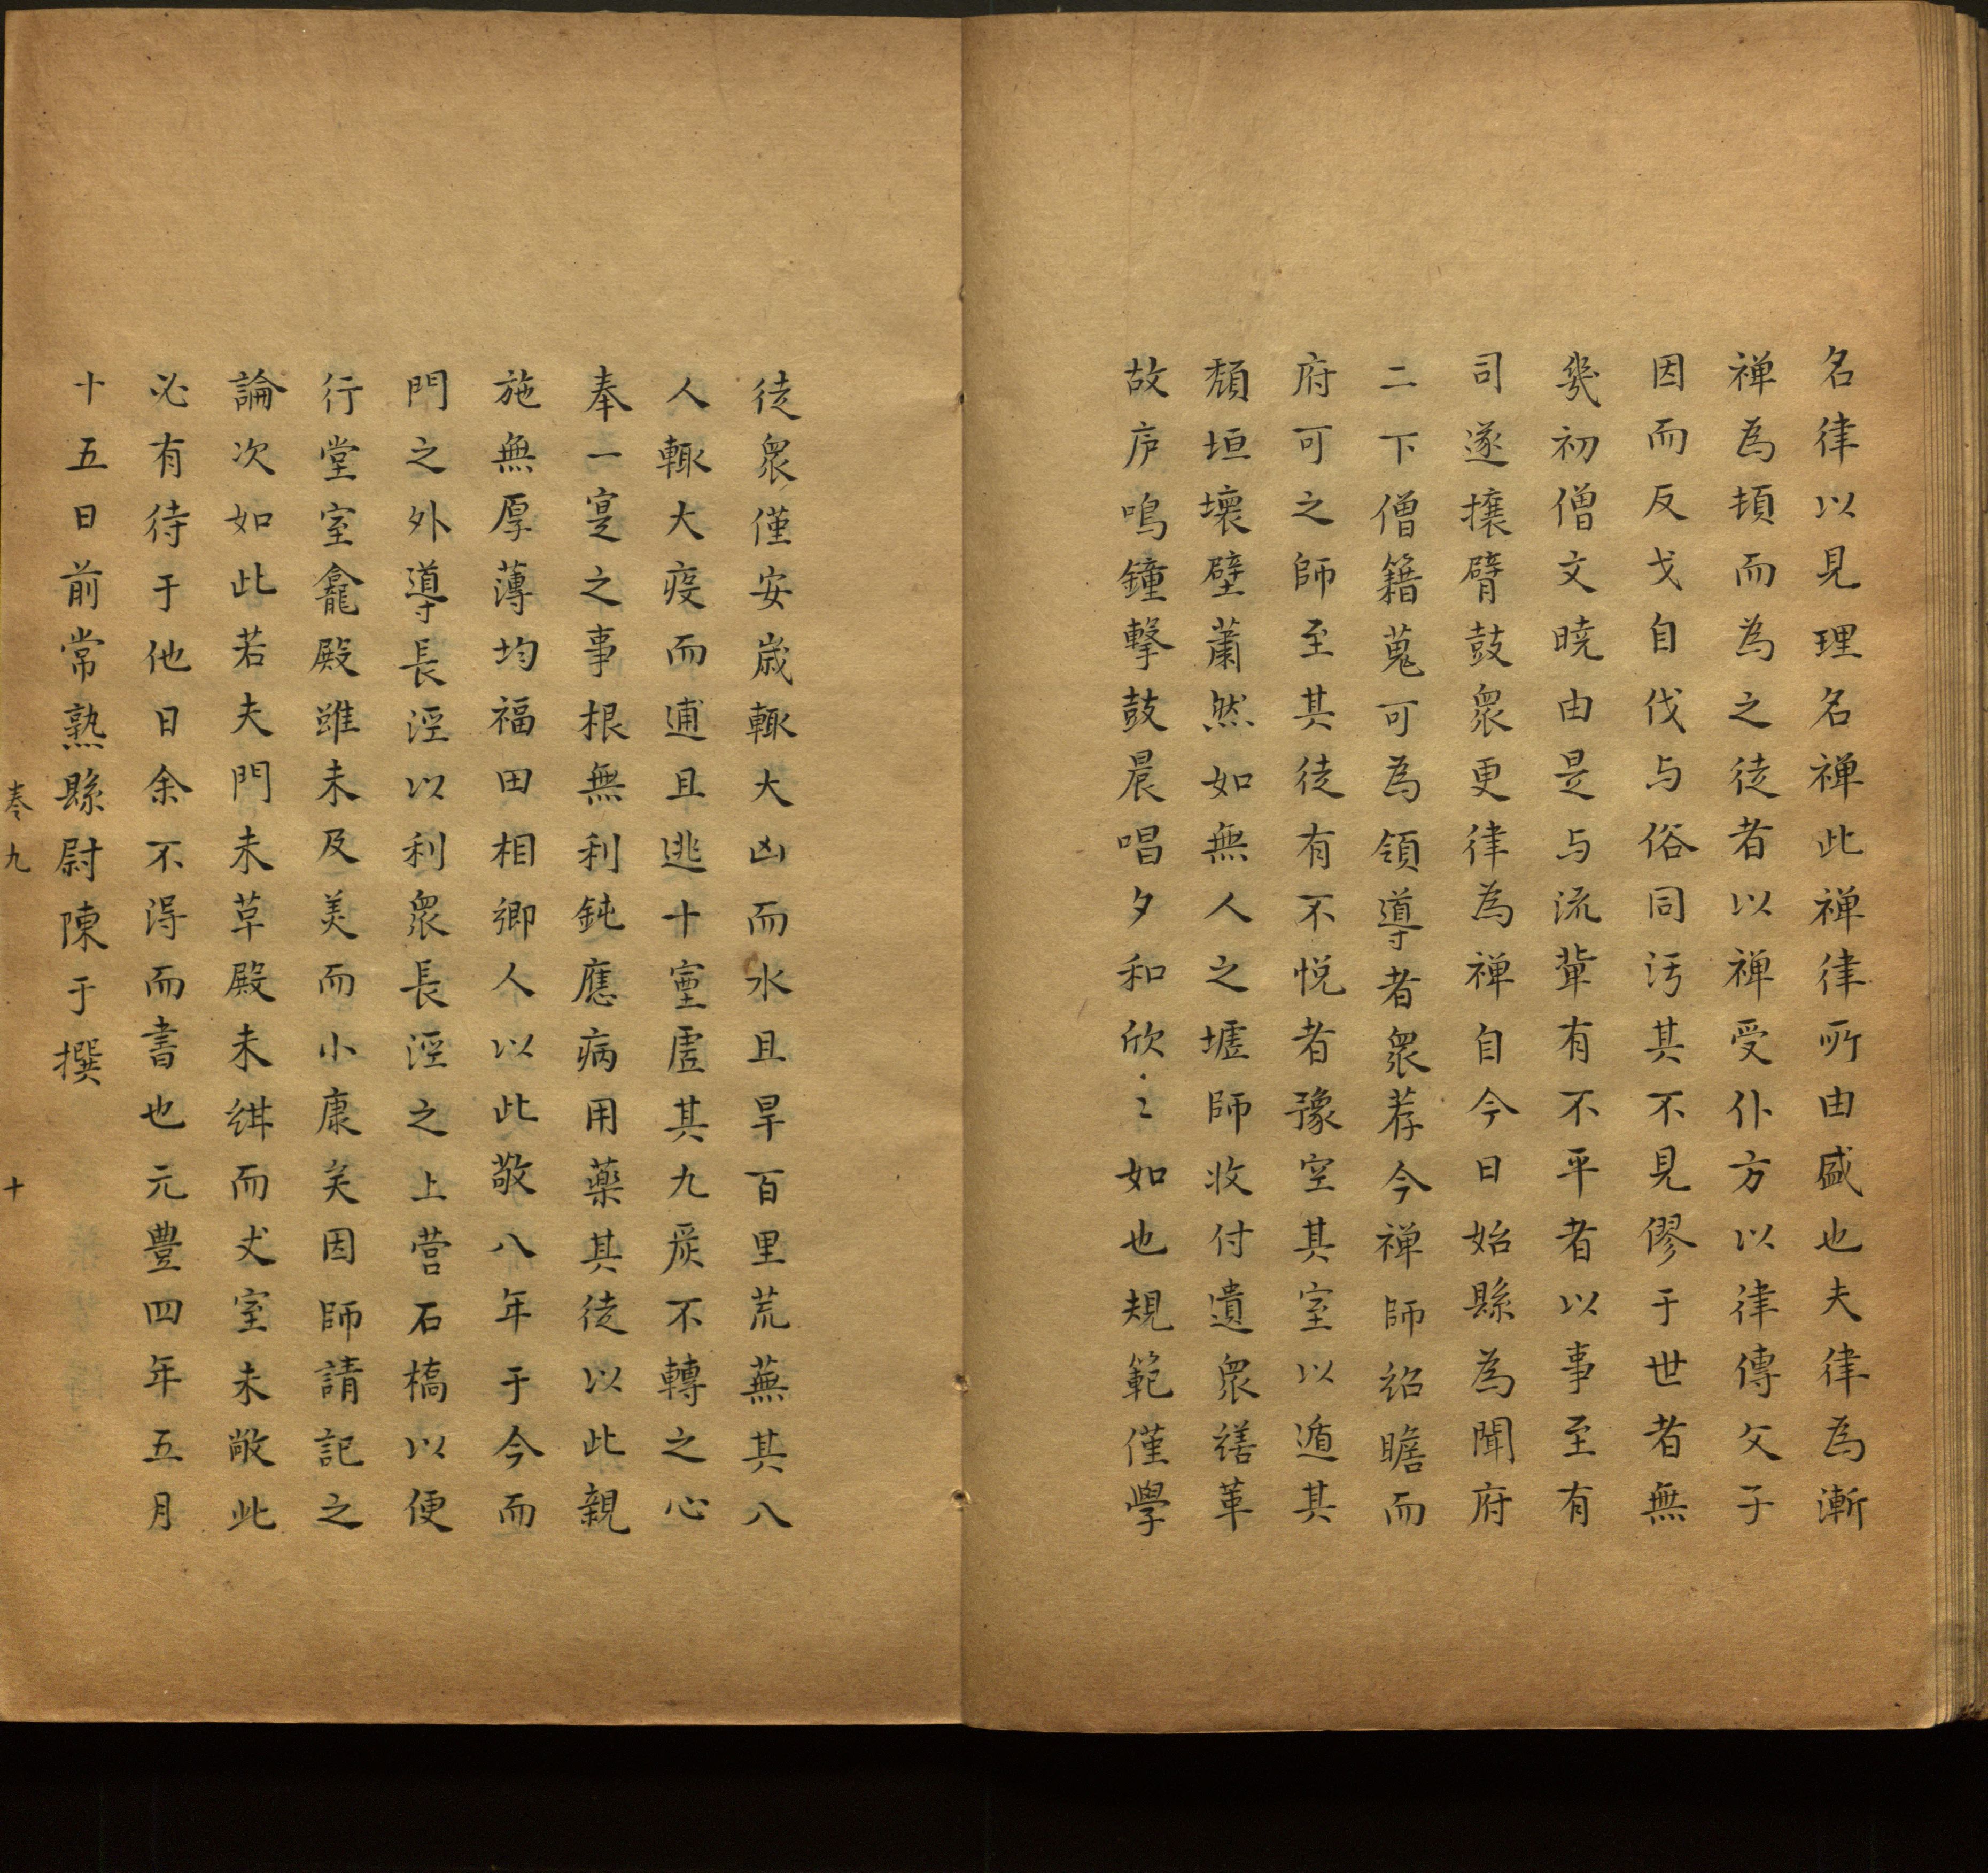 名律以見理名禅此禅律所由盛也夫律為漸
禅為頓而為之徒者以禅受仆方以律傳父子
因而反戈自伐与俗同汚其不見僇于世者無
幾初僧文暁由是与流輩有不平者以事至有
司遂攘臂鼓衆更律為禅自今日始縣為聞府
二下僧籍蒐可為領導者衆荐今禅師紹瞻而
府可之師至其徒有不悦者豫空其室以遁其
頽垣壞壁蕭然如無人之墟師收付遺衆禧革
故庐鳴鐘擊鼓晨唱夕和欣〻如也規範僅學
徒衆僅安歲輙大凶而水且旱百里荒蕪其八
人輙大疫而逋且逃十室虗其九師不轉之心
奉一寔之事根無利鈍應病用藥其徒以此親
施無厚薄均福田相鄉人以此敬八年于今而
門之外導長涇以利衆長涇之上营石橋以便
行堂室龕殿雖未及美而小康矣因師請記之
論次如此若夫門未草殿未缾而丈室未敞此
必有待于他日余不淂而書也元豊四年五月
十五日前常熟縣尉陳于撰
巻九 十